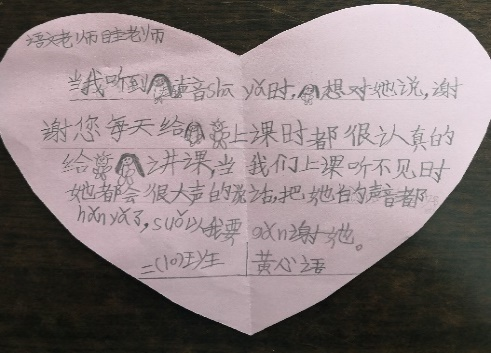 语文老师自主老师
当我听到声音sha ya时,想对她说,谢
谢您每天给上课时都很认真的
给讲课,当我们上课听不见时
她都会很大声的说话,把她的声音都
hǎn yǎ了,suǒ以我要gǎn谢她。
二(10)班
黄心语